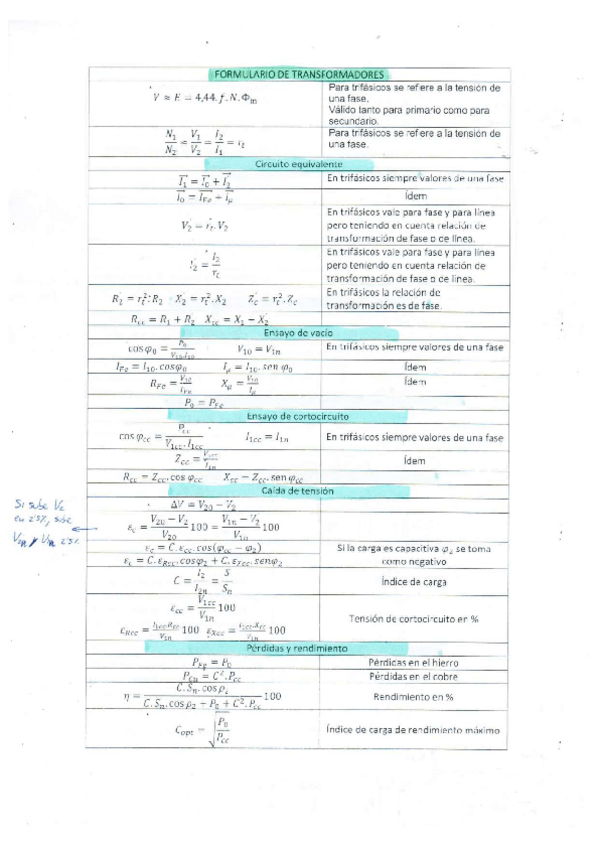 FORMULARIO DE TRANSFORMADORES
V ≈ E = 4,44.f.N.Φm
Para trifásicos se refiere a la tensión de
una fase.
Válido tanto para primario como para
secundario.
N1/N2 ≈ V1/V2 = I2/I1 = rt
Para trifásicos se refiere a la tensión de
una fase.
Circuito equivalente
I1 = I0 + I2'
En trifásicos siempre valores de una fase
I0 = IFe + Iμ
Ídem
V2' = rt.V2
En trifásicos vale para fase y para línea
pero teniendo en cuenta relación de
transformación de fase o de línea.
I2' = I2/rt
En trifásicos vale para fase y para línea
pero teniendo en cuenta relación de
transformación de fase o de línea.
R2' = rt².R2 X2' = rt².X2 Zc' = rt².Zc
En trifásicos la relación de
transformación es de fase.
Rcc = R1 + R2' Xcc = X1 + X2'
Ensayo de vacío
cos φ0 = P0/V10.I10 V10 = V1n
En trifásicos siempre valores de una fase
IFe = I10.cosφ0 Iμ = I10.sen φ0
Ídem
RFe = V10/IFe Xμ = V10/Iμ
Ídem
P0 = PFe
Ensayo de cortocircuito
cos φcc = Pcc/V1cc.I1cc I1cc = I1n
En trifásicos siempre valores de una fase
Zcc = V1cc/I1n
Ídem
Rcc = Zcc.cos φcc Xcc = Zcc.sen φcc
Caída de tensión
ΔV = V20 − V2
Si sube V2
en 2'5%, sube
V2n y V1n 2'5%
εc = V20 − V2/V20 100 = V1n − V2'/V1n 100
εc = C.εcc.cos(φcc − φ2)
εc = C.εRcc.cosφ2 + C.εXcc.senφ2
Si la carga es capacitiva φ2 se toma
como negativo
C = I2/I2n = S/Sn
Índice de carga
εcc = V1cc/V1n 100
εRcc = I1cc.Rcc/V1n 100 εXcc = I1cc.Xcc/V1n 100
Tensión de cortocircuito en %
Pérdidas y rendimiento
PFe = P0
Pérdidas en el hierro
PCu = C².Pcc
Pérdidas en el cobre
η = C.Sn.cos φ2/C.Sn.cos φ2 + P0 + C².Pcc 100
Rendimiento en %
Copt = √P0/Pcc
Índice de carga de rendimiento máximo